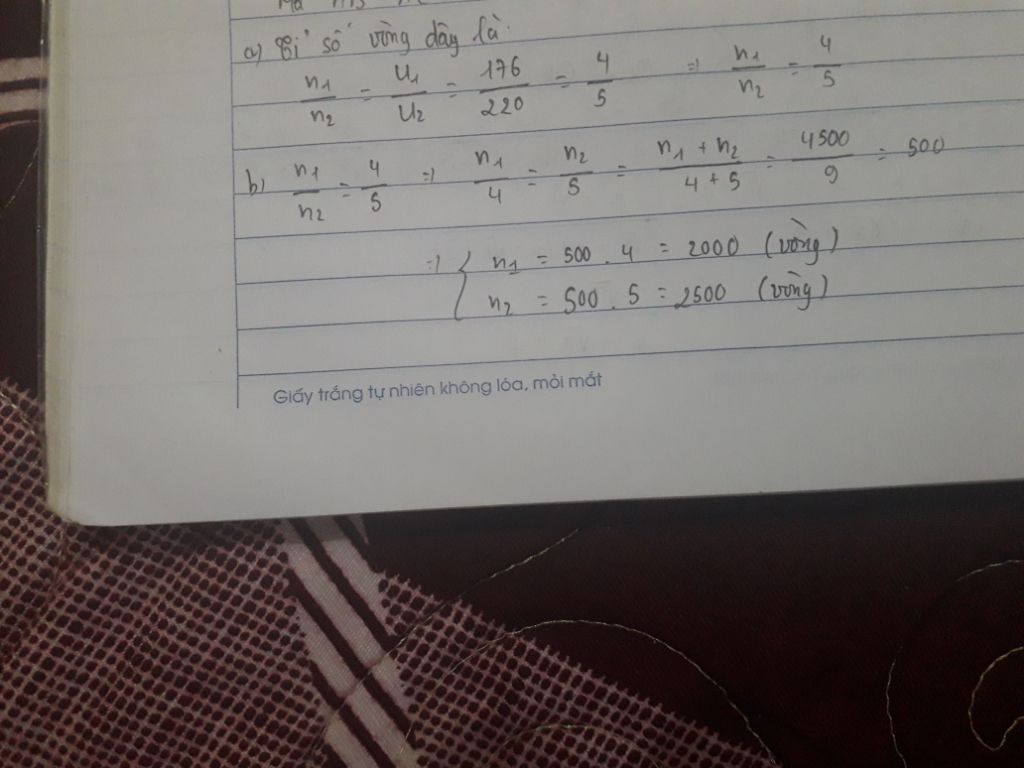 a) Tỉ số vòng dây là:
n1/n2 = U1/U2 = 176/220 = 4/5 => n1/n2 = 4/5
b) n1/n2 = 4/5 => n1/4 = n2/5 = n1 + n2/4 + 5 = 4500/9 = 500
=> { n1 = 500 . 4 = 2000 (vòng)
n2 = 500 . 5 = 2500 (vòng)
Giấy trắng tự nhiên không lóa, mỏi mắt